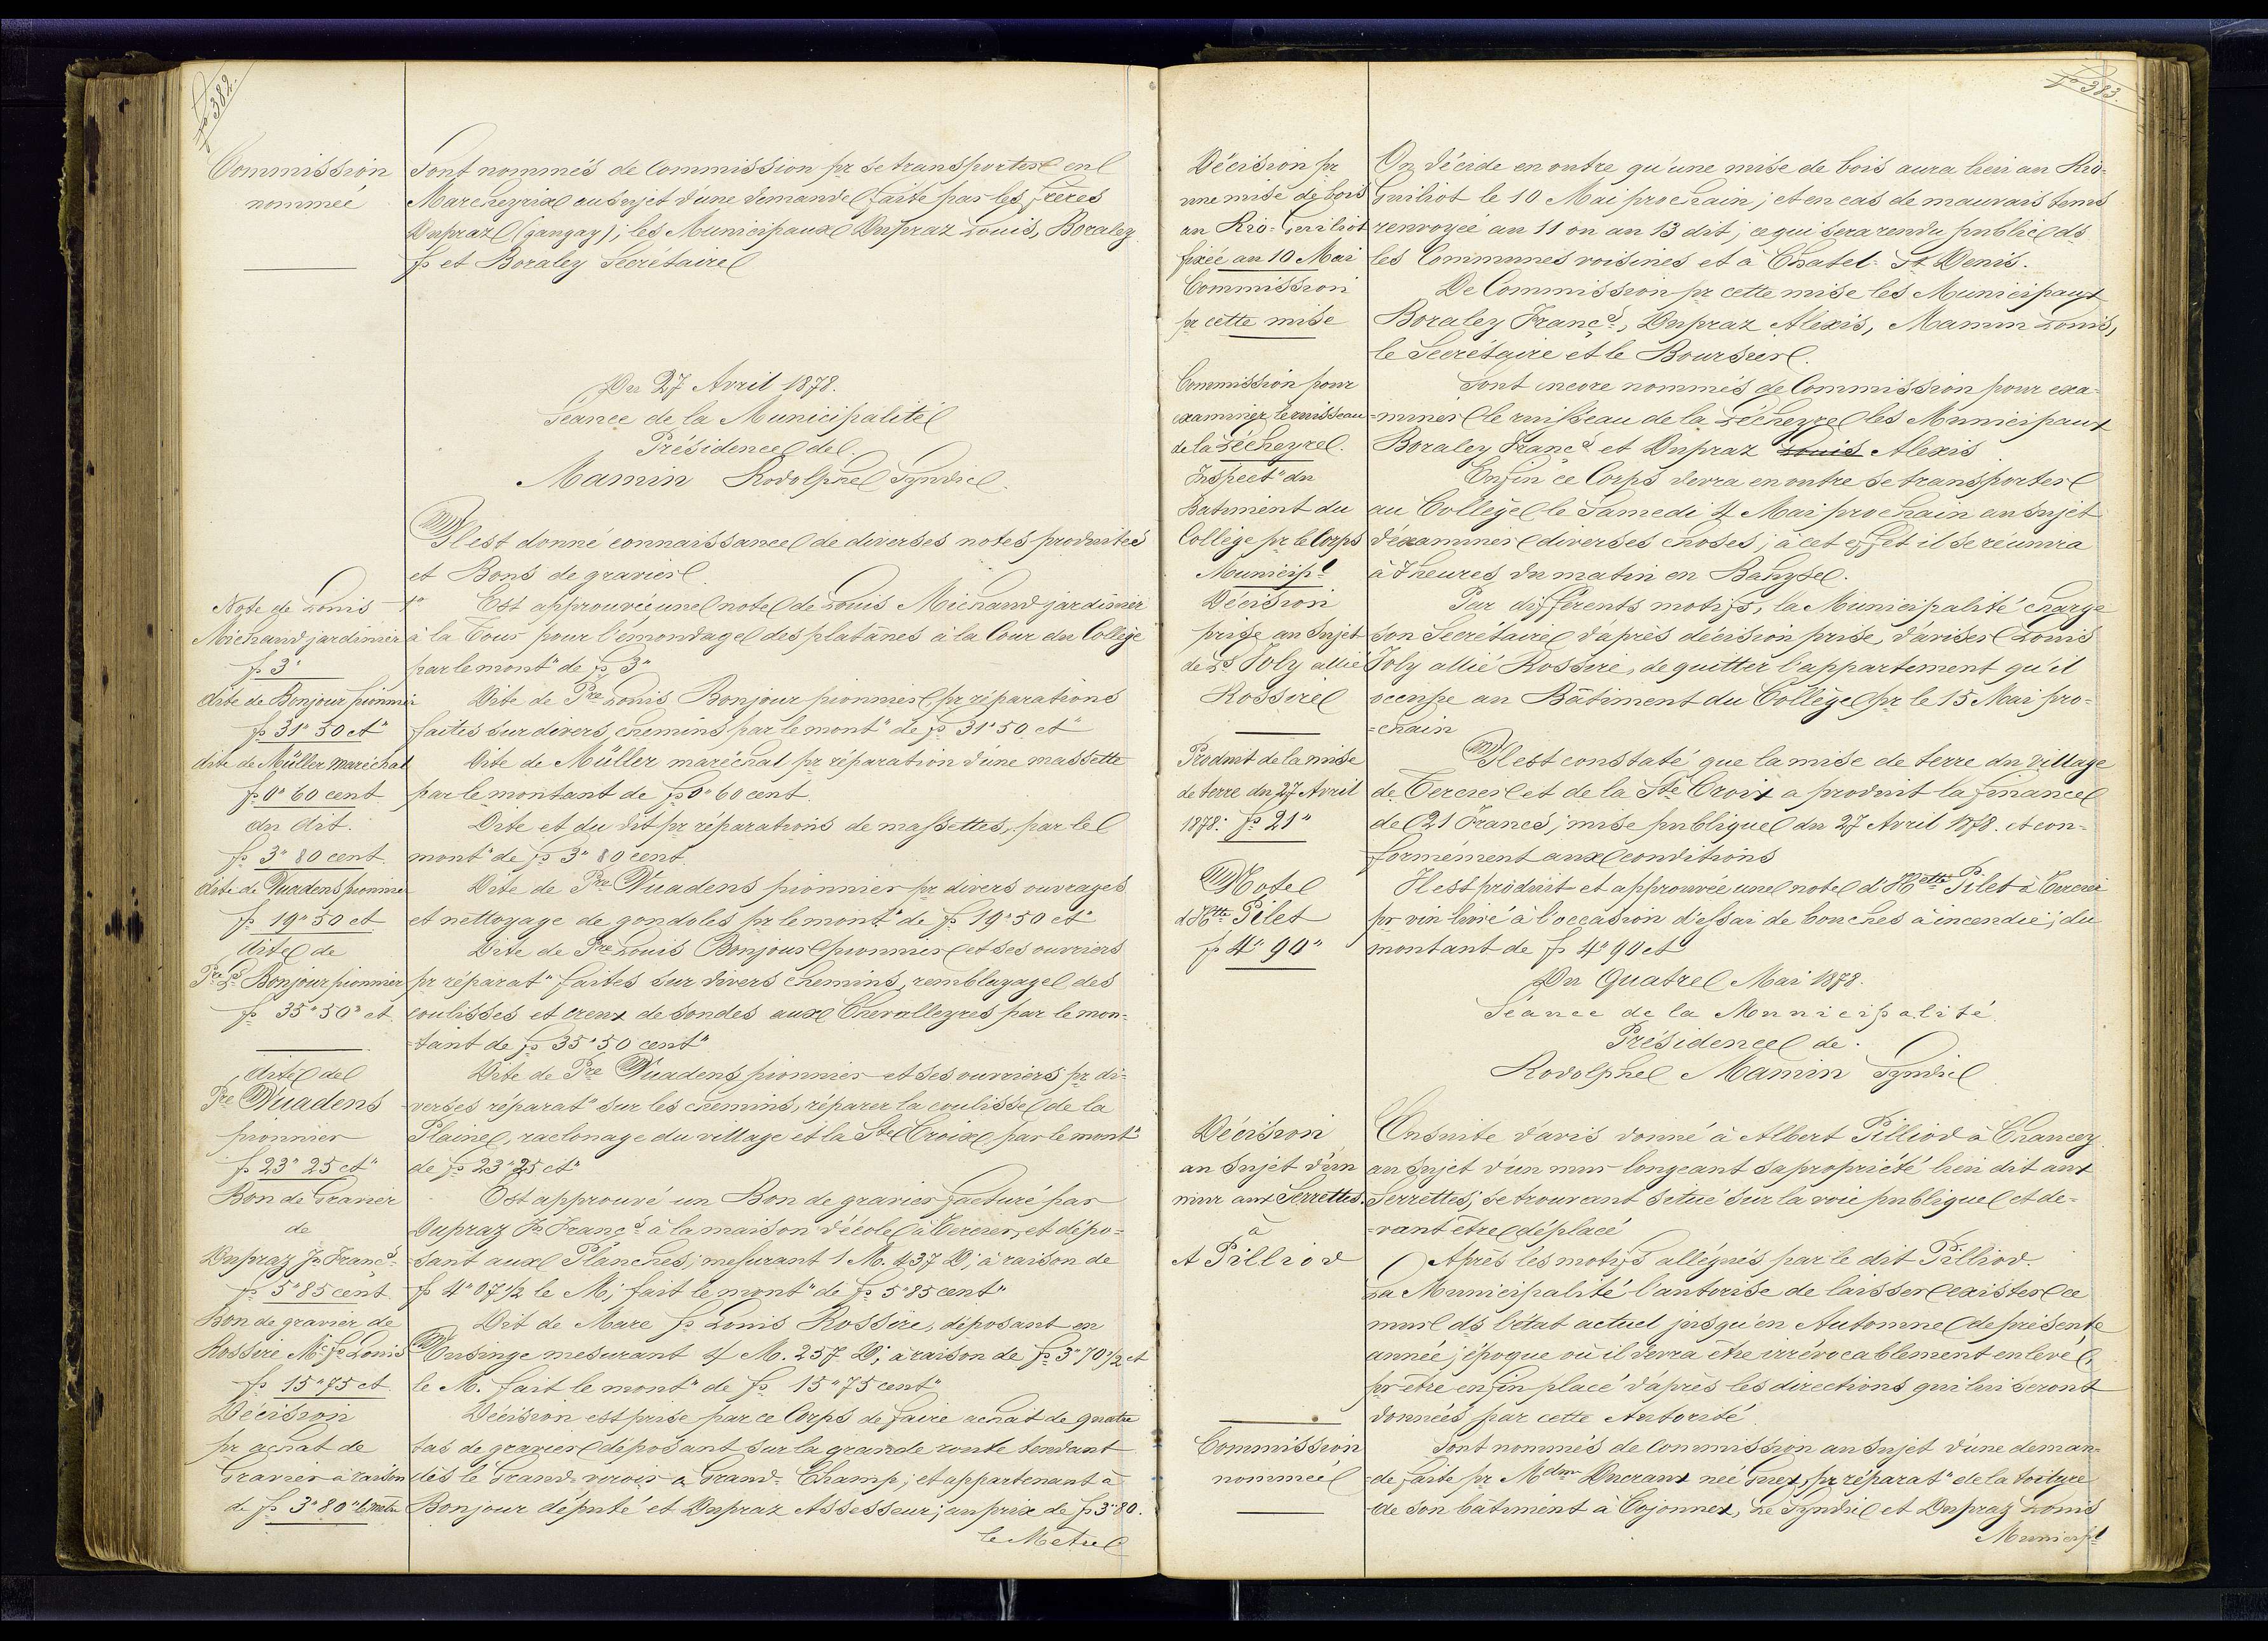 fo 382.
Commission
nommée
Sont nommés de Commission pr se transporter en
Marcheyrix au sujet d'une demande faite par les frères
Dupraz (gangaz); les Municipaux Dupraz Louis, Boraley
fs et Boraley Secretaire
Du 27 Avril 1878.
Séance de la Municipalité
Présidence de
Mamin Rodolphe Syndic.
Il est donné connaissance de diverses notes produites
et Bons de gravier
Note de Louis
Michaud jardinier
fs 3"
1o Est approuvée une note de Louis Michaud jardinier
à la Tour pour l'émondage des platanes à la Cour du Collège
par le mont" de fs 3"
dite de Bonjour pionnier
fs 31" 50 ct"
Dite de Pre Louis Bonjour pionnier pr réparations
faites sur divers chemins par le mont" de fs 31" 50 ct
dite de Müller maréchal
fs 0" 60 cent
Dite de Müller maréchal pr réparation d'une massette
par le montant de fs 0" 60 cent.
du dit.
fs 3" 80 cent.
Dite et du dit pr réparations de massettes, par le
mont" de fs 3" 80 cent.
dite de Vuadens pionnier
fs 19" 50 ct
Dite de Pre Vuadens pionnier pr divers ouvrages
et nettoyage de gondoles pr le mont" de fs 19" 50 ct"
dite de
Pre Ls Bonjour pionnier
fs 35" 50" ct
Dite de Pre Louis Bonjour pionnier et ses ouvriers
pr réparat" faites sur divers chemins, remblayage des
coulisses et creux de sondes aux Chevalleyres par le mon-
-tant de fs 35" 50 cent"
dite de
Pre Vuadens
pionnier
fs 23" 25 ct"
Dite de Pre Vuadens pionnier et ses ouvriers pr di-
verses réparat" sur les chemins, réparer la coulisse de la
Plaine, raclonage du village et la Ste Croix par le mont"
de fs 23" 25 ct"
Bon de Gravier
de
Dupraz Js Francs
fs 5" 85 cent
Est approuvé un Bon de gravier facturé par
Dupraz Js Francs à la maison d'école à Tercier, et dépo-
-sant aux Planches; mesurant 1 M. 437 D; à raison de
fs 4" 07 1/2 le M; fait le mont" de fs 5" 85 cent"
Bon de gravier de
Rossire Mc fs Louis
fs 15" 75 ct
Dit de Marc fs Louis Rossire, déposant en
Ensinge mesurant 4 M. 257 D; à raison de fs 3" 70 1/2 ct
le M. fait le mont" de fs 15" 75 cent"
Décision
pr achat de
Gravier à raison
de fs 3" 80" le mètre
Décision est prise par ce Corps de faire achat de quatre
tas de gravier déposant sur la grande route tendant
dès le Grand-veroir à Grand-Champ; et appartenant à
Bonjour député et Dupraz Assesseur; au prix de fs 3" 80.
le Mètre
fo 383.
Décision pr
une mise de bois
au Rio-Guiliot
fixée au 10 Mai
On décide en outre qu'une mise de bois aura lieu au Rio-
Guiliot le 10 Mai prochain; et en cas de mauvais tems
renvoyée au 11 ou au 13 dit; ce qui sera rendu public ds
les Communes voisines et à Chatel-St Denis.
Commission
pr cette mise
De Commission pr cette mise les Municipaux
Boraley Francs, Dupraz Alexis, Mamin Louis,
le Secrétaire et le Boursier.
Commission pour
examiner le ruisseau
de la Lécheyre.
Sont encore nommés de Commission pour exa-
-miner le ruisseau de la Lécheyre les Municipaux
Boraley Francs et Dupraz Louis Alexis
Inspect" du
Batiment du
Collège pr le Corps
Municipl
Enfin ce Corps devra en outre se transporter
au Collège le Samedi 4 Mai prochain au sujet
d'éxaminer diverses choses; à cet effet il se réunira
à 7 heures du matin en Bahyse.
Décision
prise au Sujet
de Ls Joly allié
Rossire
Par différents motifs, la Municipalité charge
son Secrétaire d'après décision prise, d'aviser Louis
Joly allié Rossire, de quitter l'appartement qu'il
occupe au Bâtiment du Collège pr le 15 Mai pro-
-chain
Produit de la mise
de terre du 27 Avril
1878. fs 21"
Il est constaté que la mise de terre du village
de Tercier et de la Ste Croix a produit la finance
de 21 Francs; mise publique du 27 Avril 1878. et con-
formément aux conditions
Note
d'Htte Pilet
fs 4" 90"
Il est produit et approuvée une note d'Hette Pilet à Tercier
pr vin livré à l'occasion d'essai de bouches à incendie; du
montant de fs 4" 90 ct
Du Quatre Mai 1878.
Séance de la Municipalité.
Présidence de.
Rodolphe Mamin Syndic
Décision
au sujet d'un
mur aux Serrettes
à
A Pilliod
Ensuite d'avis donné à Albert Pilliod à Chancez
au sujet d'un mur longeant sa propriété lieu dit aux
Serrettes; se trouvant situé sur la voie publique et de-
-vant être déplacé
Après les motifs allégués par le dit Pilliod.
La Municipalité l'autorise de laisser exister ce
mur ds l'état actuel jusqu'en Automne de présente
année; époque où il devra être irrévocablement enlevé,
pr être enfin placé d'après les directions qui lui seront
données par cette Autorité.
Commission
nommée
Sont nommés de Commission au sujet d'une deman-
-de faite pr Mdme Ducraux née Guex, pr réparat" de la toiture
de son bâtiment à Cojonnex, Le Syndic et Dupraz Louis
Municipl